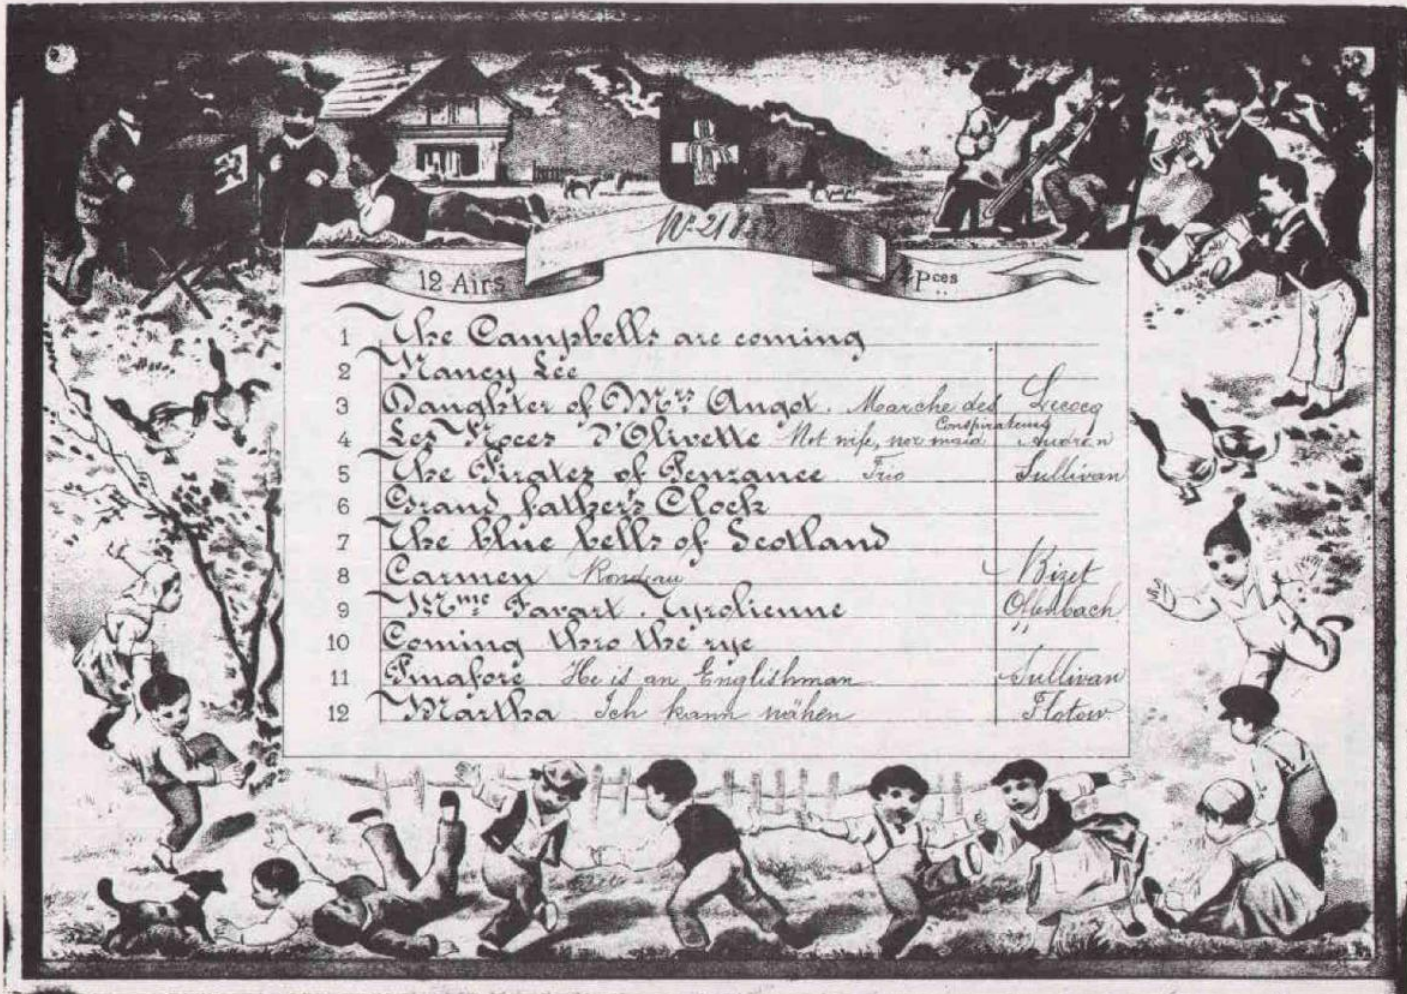 No 2188
12 Airs
Pces
1 The Campbells are coming
2 Nancy Lee
3 Daughter of Mrs Angot. Marche des Conspirateurs Lecocq
4 Les Noces d'Olivette Not wife, nor maid Audran
5 The Pirates of Penzance Trio Sullivan
6 Grand father's Clock
7 The blue bells of Scotland
8 Carmen Rondeau Bizet
9 Mme Favart. Tyrolienne Offenbach
10 Coming thro the rye "
11 Pinafore He is an Englishman Sullivan
12 Martha Ich kann nähen Flotow